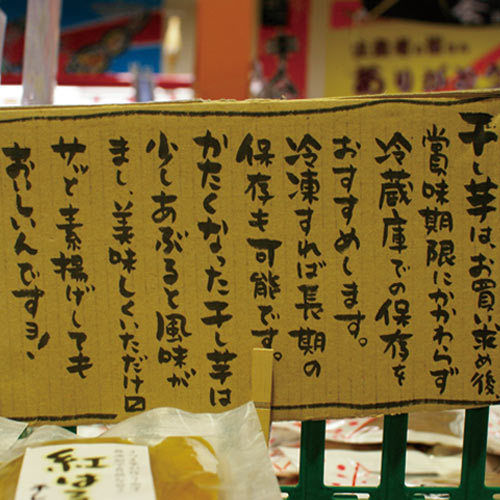 干し芋はお買い求め後
賞味期限にかかわらず
冷蔵庫での保存を
おすすめします。
冷凍すれば長期の
保存も可能です。
かたくなった干し芋は
少しあぶると風味が
まし、美味しくいただけ〼
サッと素揚げしても
おいしいんですヨ!
紅は